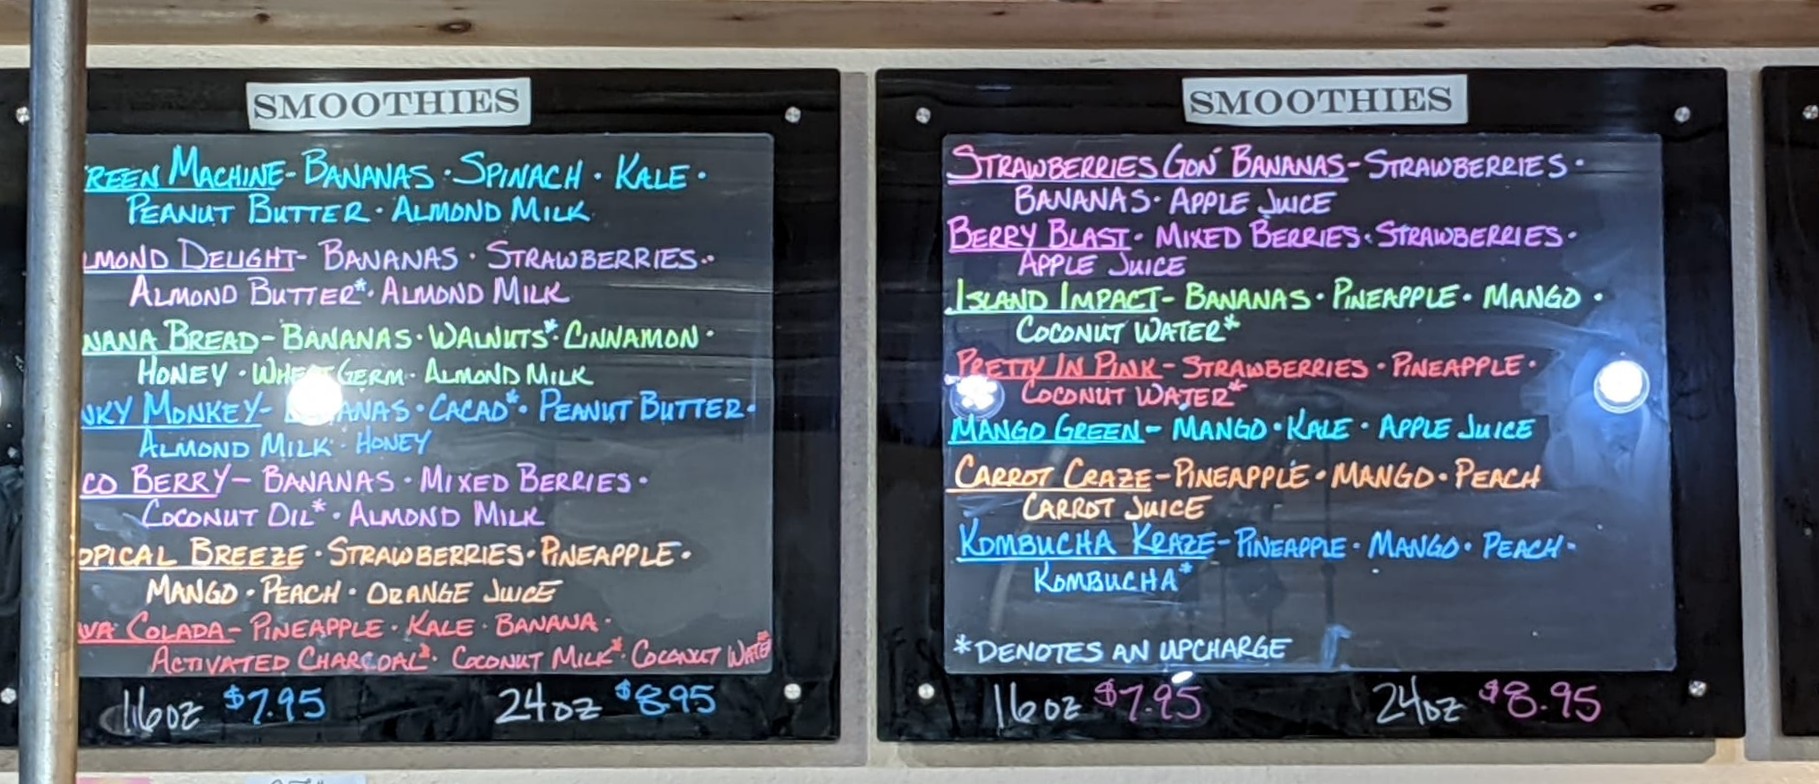 SMOOTHIES
REEN MACHINE- BANANAS · SPINACH · KALE ·
PEANUT BUTTER · ALMOND MILK
LMOND DELIGHT- BANANAS · STRAWBERRIES ·
ALMOND BUTTER* · ALMOND MILK
NANA BREAD- BANANAS · WALNUTS* · CINNAMON ·
HONEY · WHEAT GERM · ALMOND MILK
NKY MONKEY- BANANAS · CACAO* · PEANUT BUTTER ·
ALMOND MILK · HONEY
CO BERRY- BANANAS · MIXED BERRIES ·
COCONUT OIL* · ALMOND MILK
OPICAL BREEZE · STRAWBERRIES · PINEAPPLE ·
MANGO · PEACH · ORANGE JUICE
AVA COLADA- PINEAPPLE · KALE · BANANA ·
ACTIVATED CHARCOAL* · COCONUT MILK* · COCONUT WATER*
16oz $7.95 24oz $8.95
SMOOTHIES
STRAWBERRIES GON' BANANAS- STRAWBERRIES ·
BANANAS · APPLE JUICE
BERRY BLAST · MIXED BERRIES · STRAWBERRIES ·
APPLE JUICE
ISLAND IMPACT- BANANAS · PINEAPPLE · MANGO ·
COCONUT WATER*
PRETTY IN PINK- STRAWBERRIES · PINEAPPLE ·
COCONUT WATER*
MANGO GREEN- MANGO · KALE · APPLE JUICE
CARROT CRAZE- PINEAPPLE · MANGO · PEACH
CARROT JUICE
KOMBUCHA KRAZE- PINEAPPLE · MANGO · PEACH ·
KOMBUCHA*
*DENOTES AN UPCHARGE
16oz $7.95 24oz $8.95